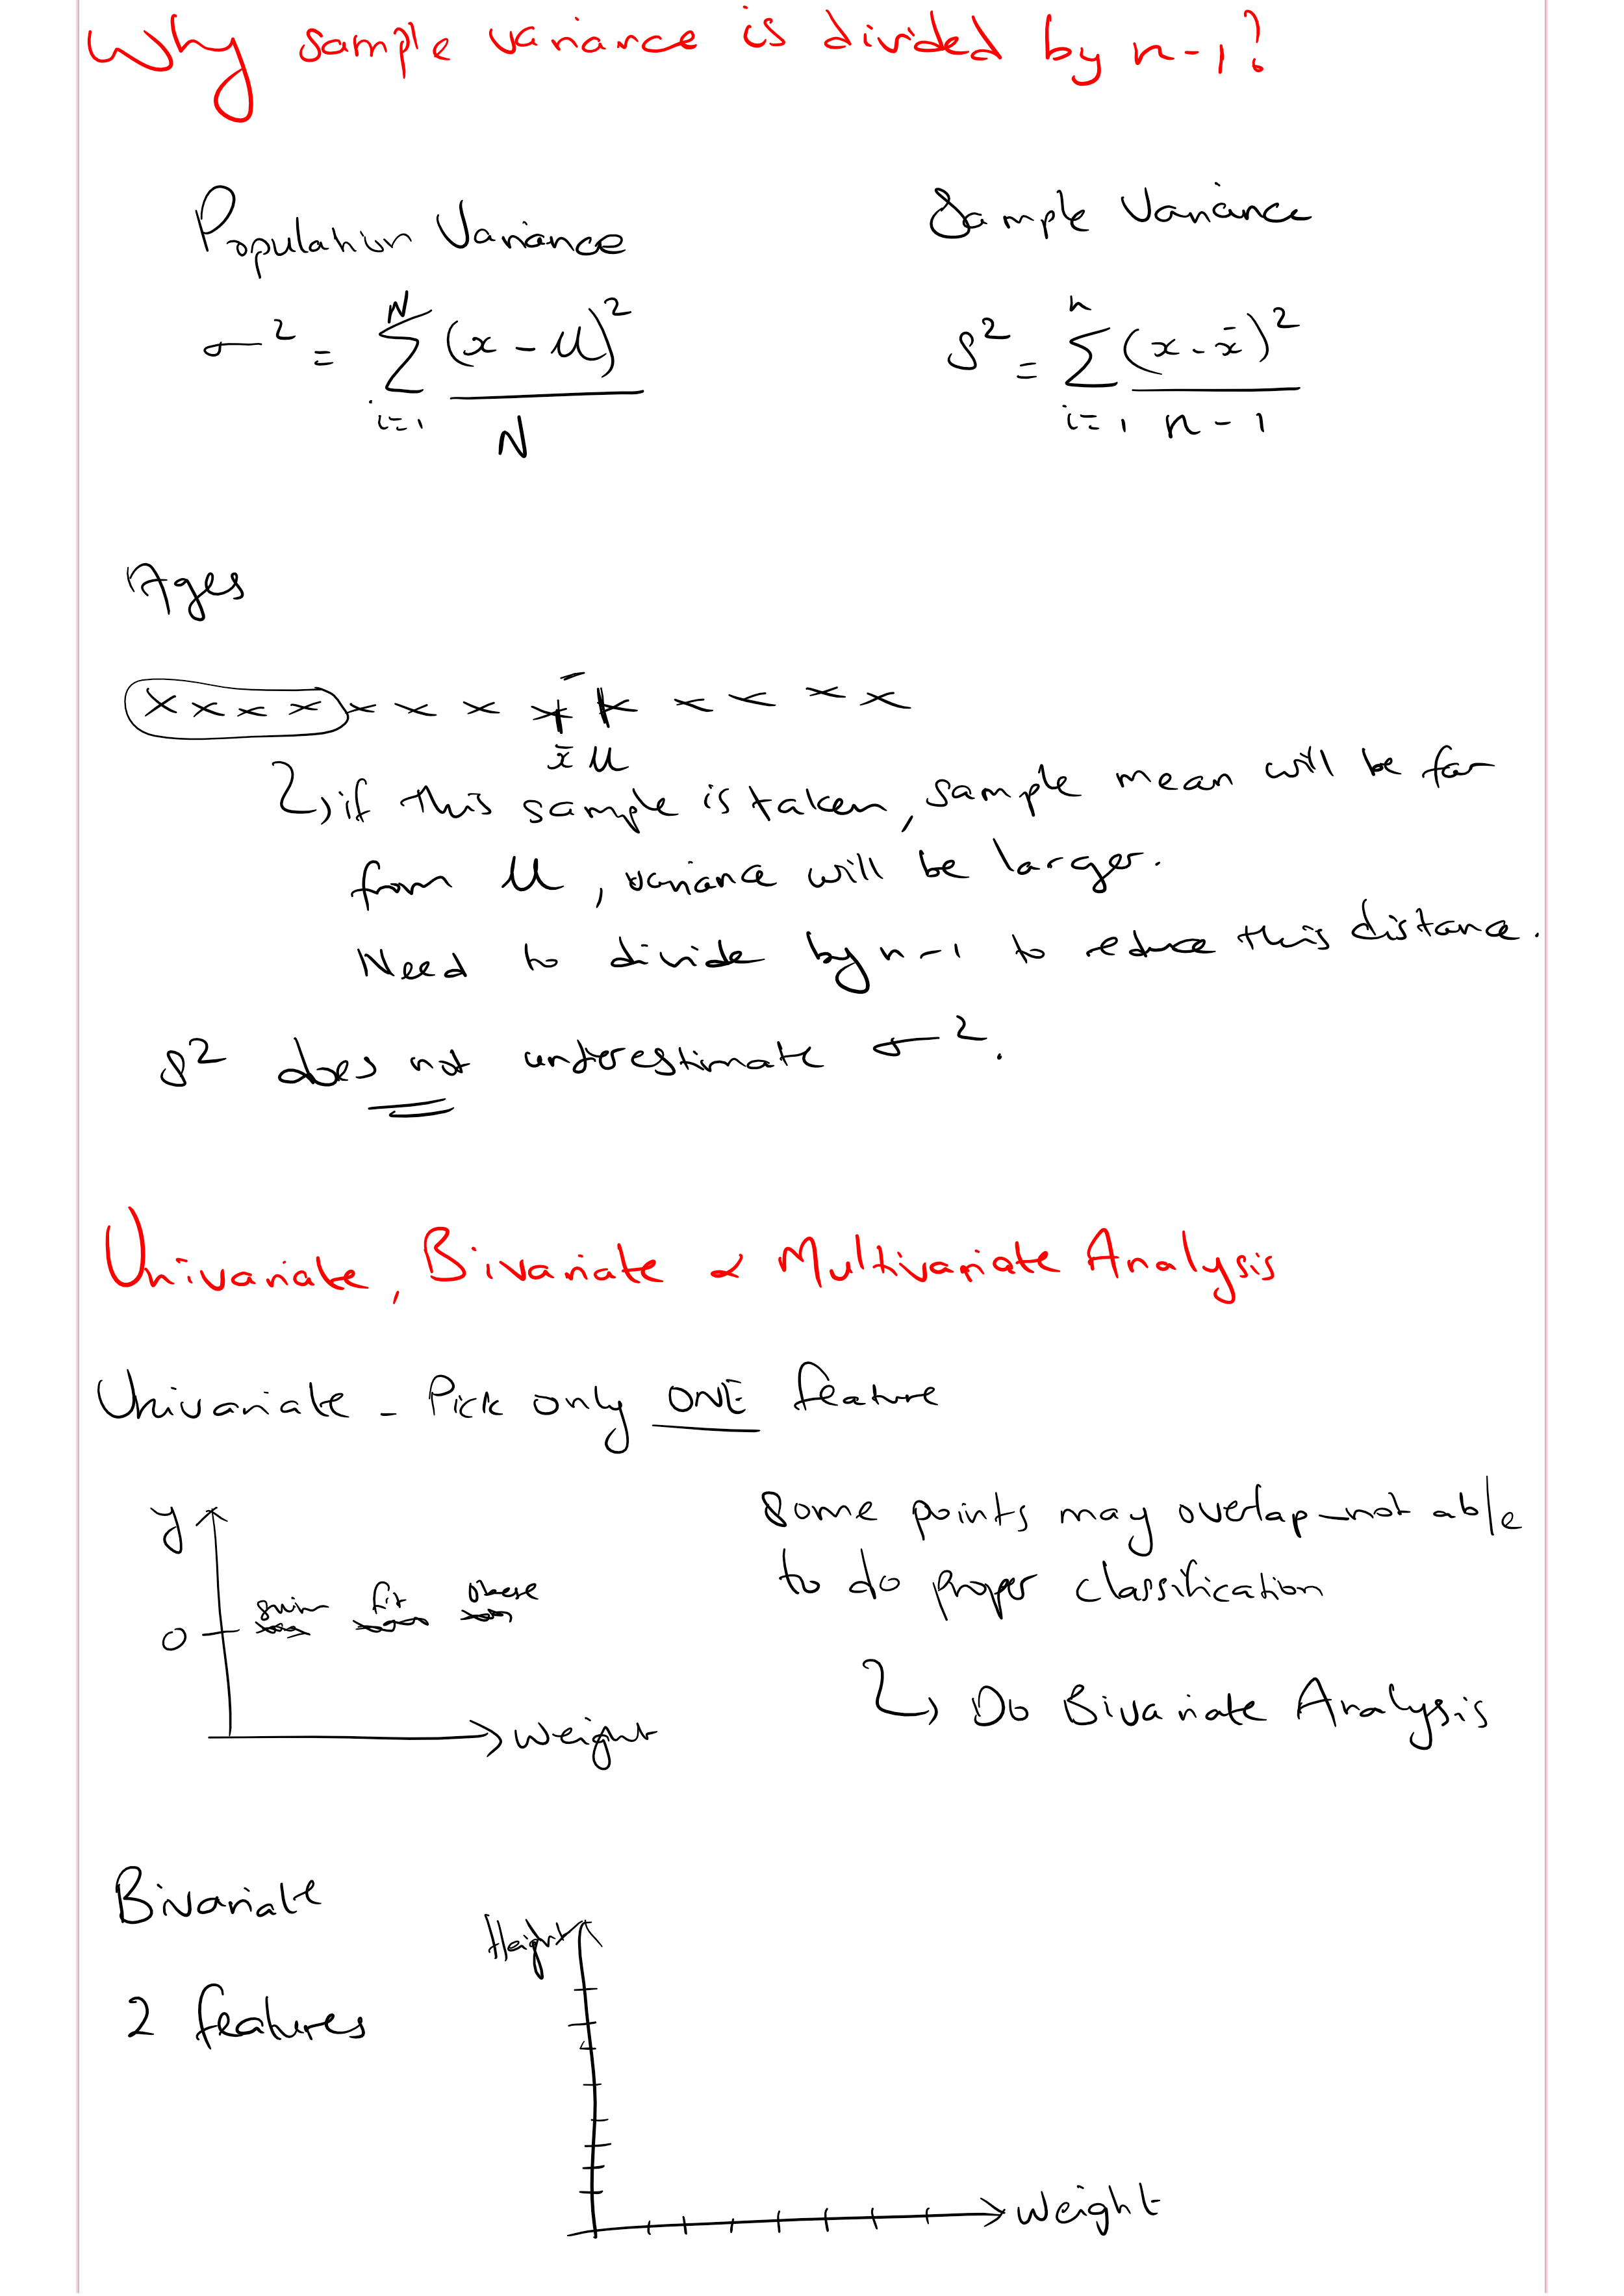 Why sample variance is divided by n-1?
Population Variance
σ² = Σ (x - μ)² / N
N
i=1
Sample Variance
s² = Σ (x - x̄)² / n - 1
n
i=1
Ages
x x x x x x x x x x x x x
x̄ μ
if this sample is taken, sample mean will be far
from μ, variance will be larger.
Need to divide by n-1 to reduce this distance.
s² does not underestimate σ².
Univariate, Bivariate & Multivariate Analysis
Univariate - Pick only ONE feature
y
0
fit obese
weight
Some points may overlap - not able
to do proper classification
Do Bivariate Analysis
Bivariate
2 features
Height
weight